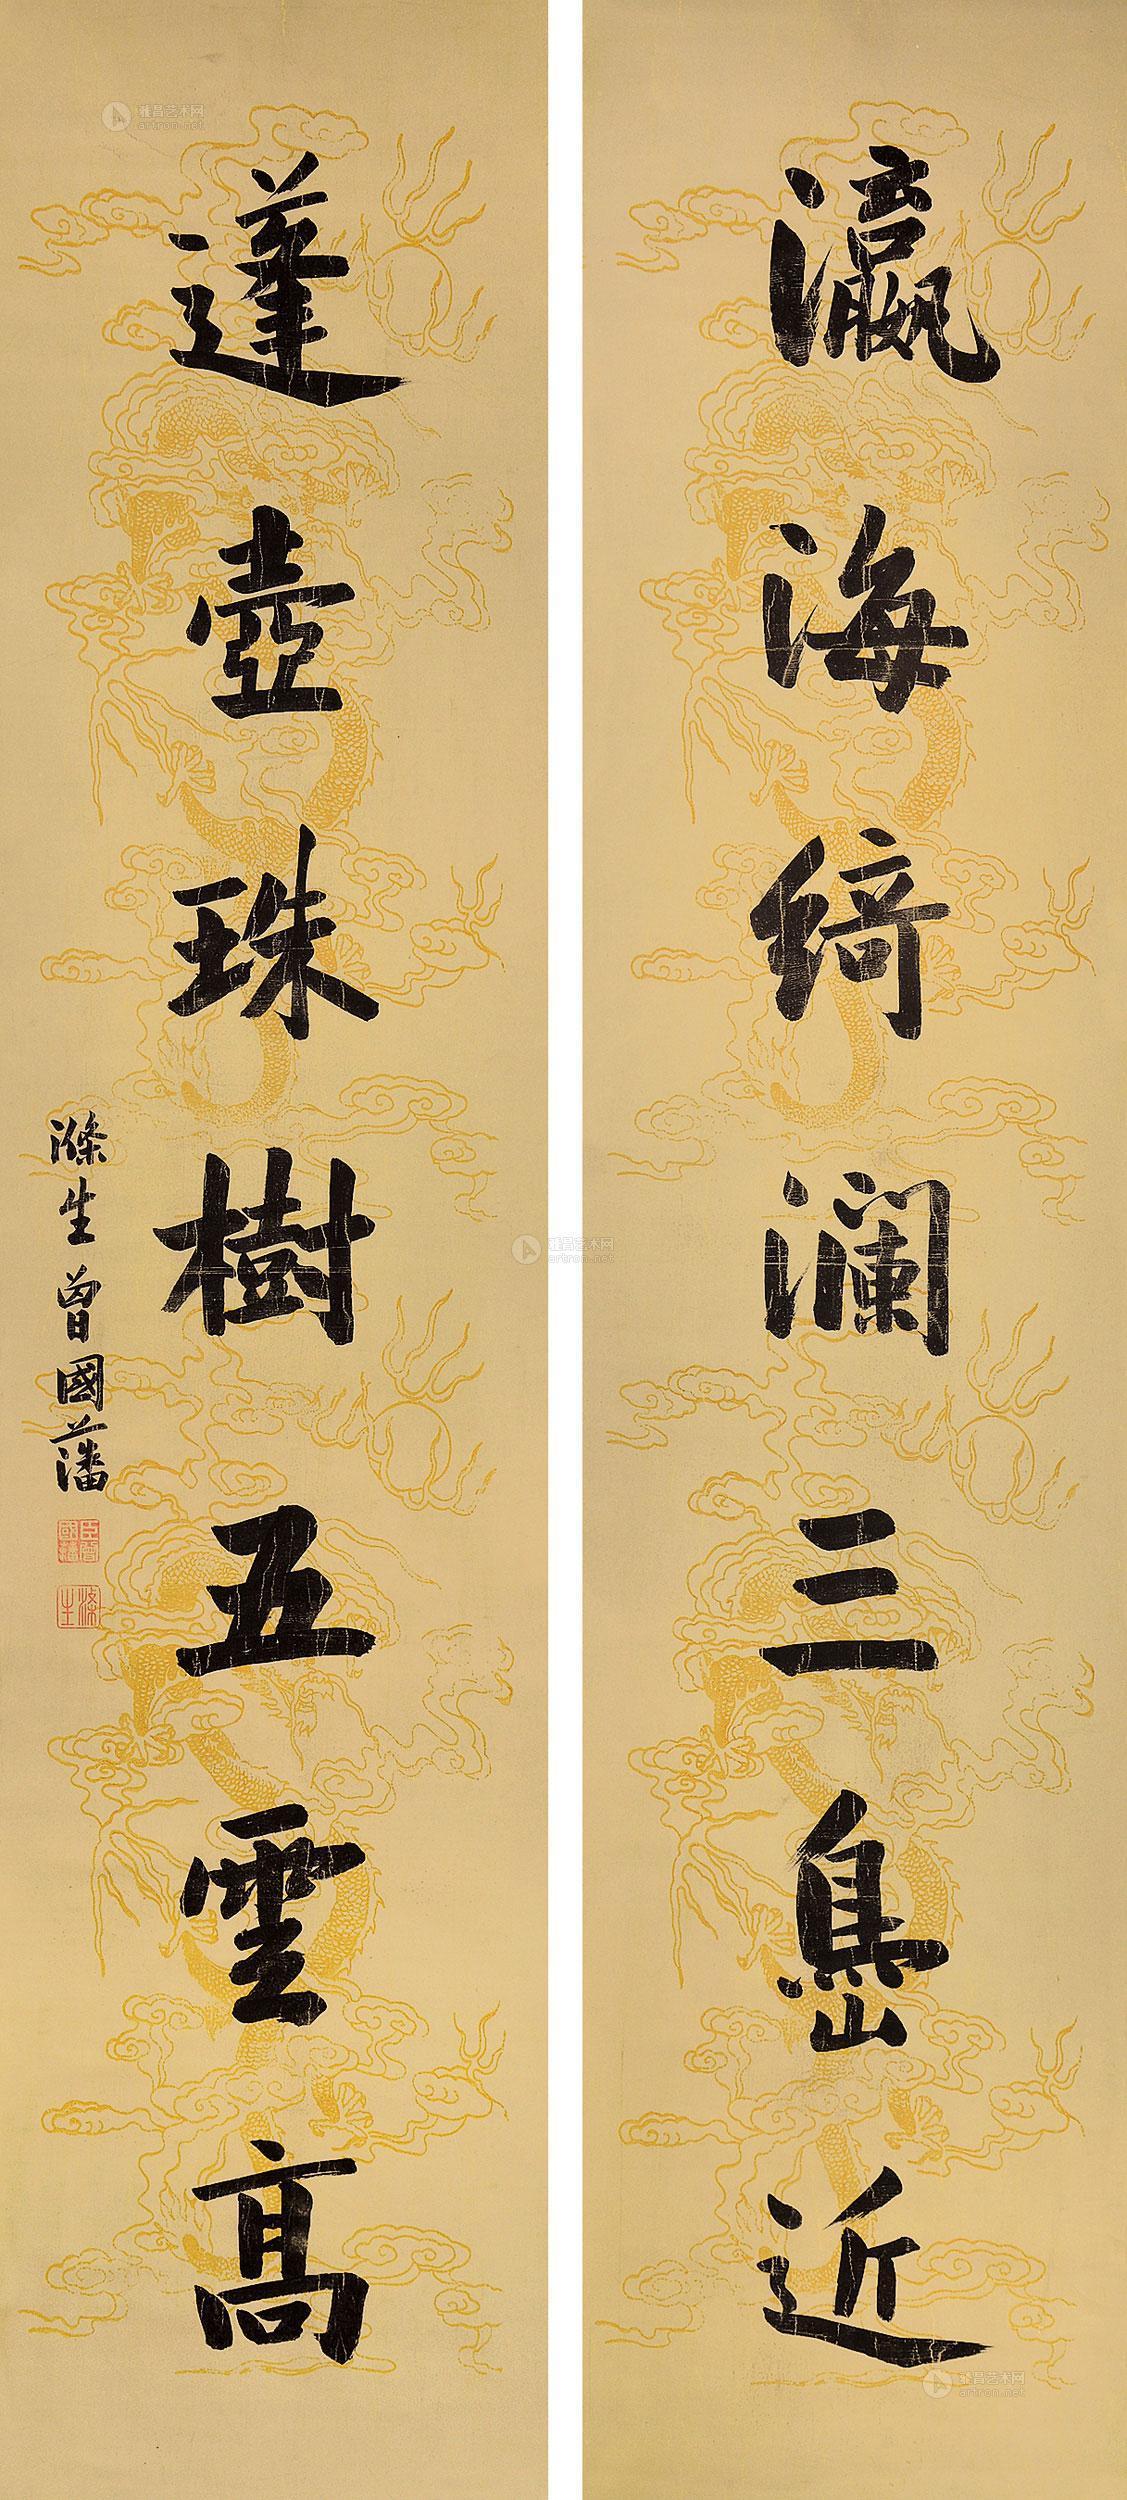 瀛海綺瀾三㠀近
蓬壺珠樹五雲高
滌生曾國藩
臣曾國藩
滌生
雅昌艺术网
artron.net
雅昌艺术网
artron.net
雅昌艺术网
artron.net